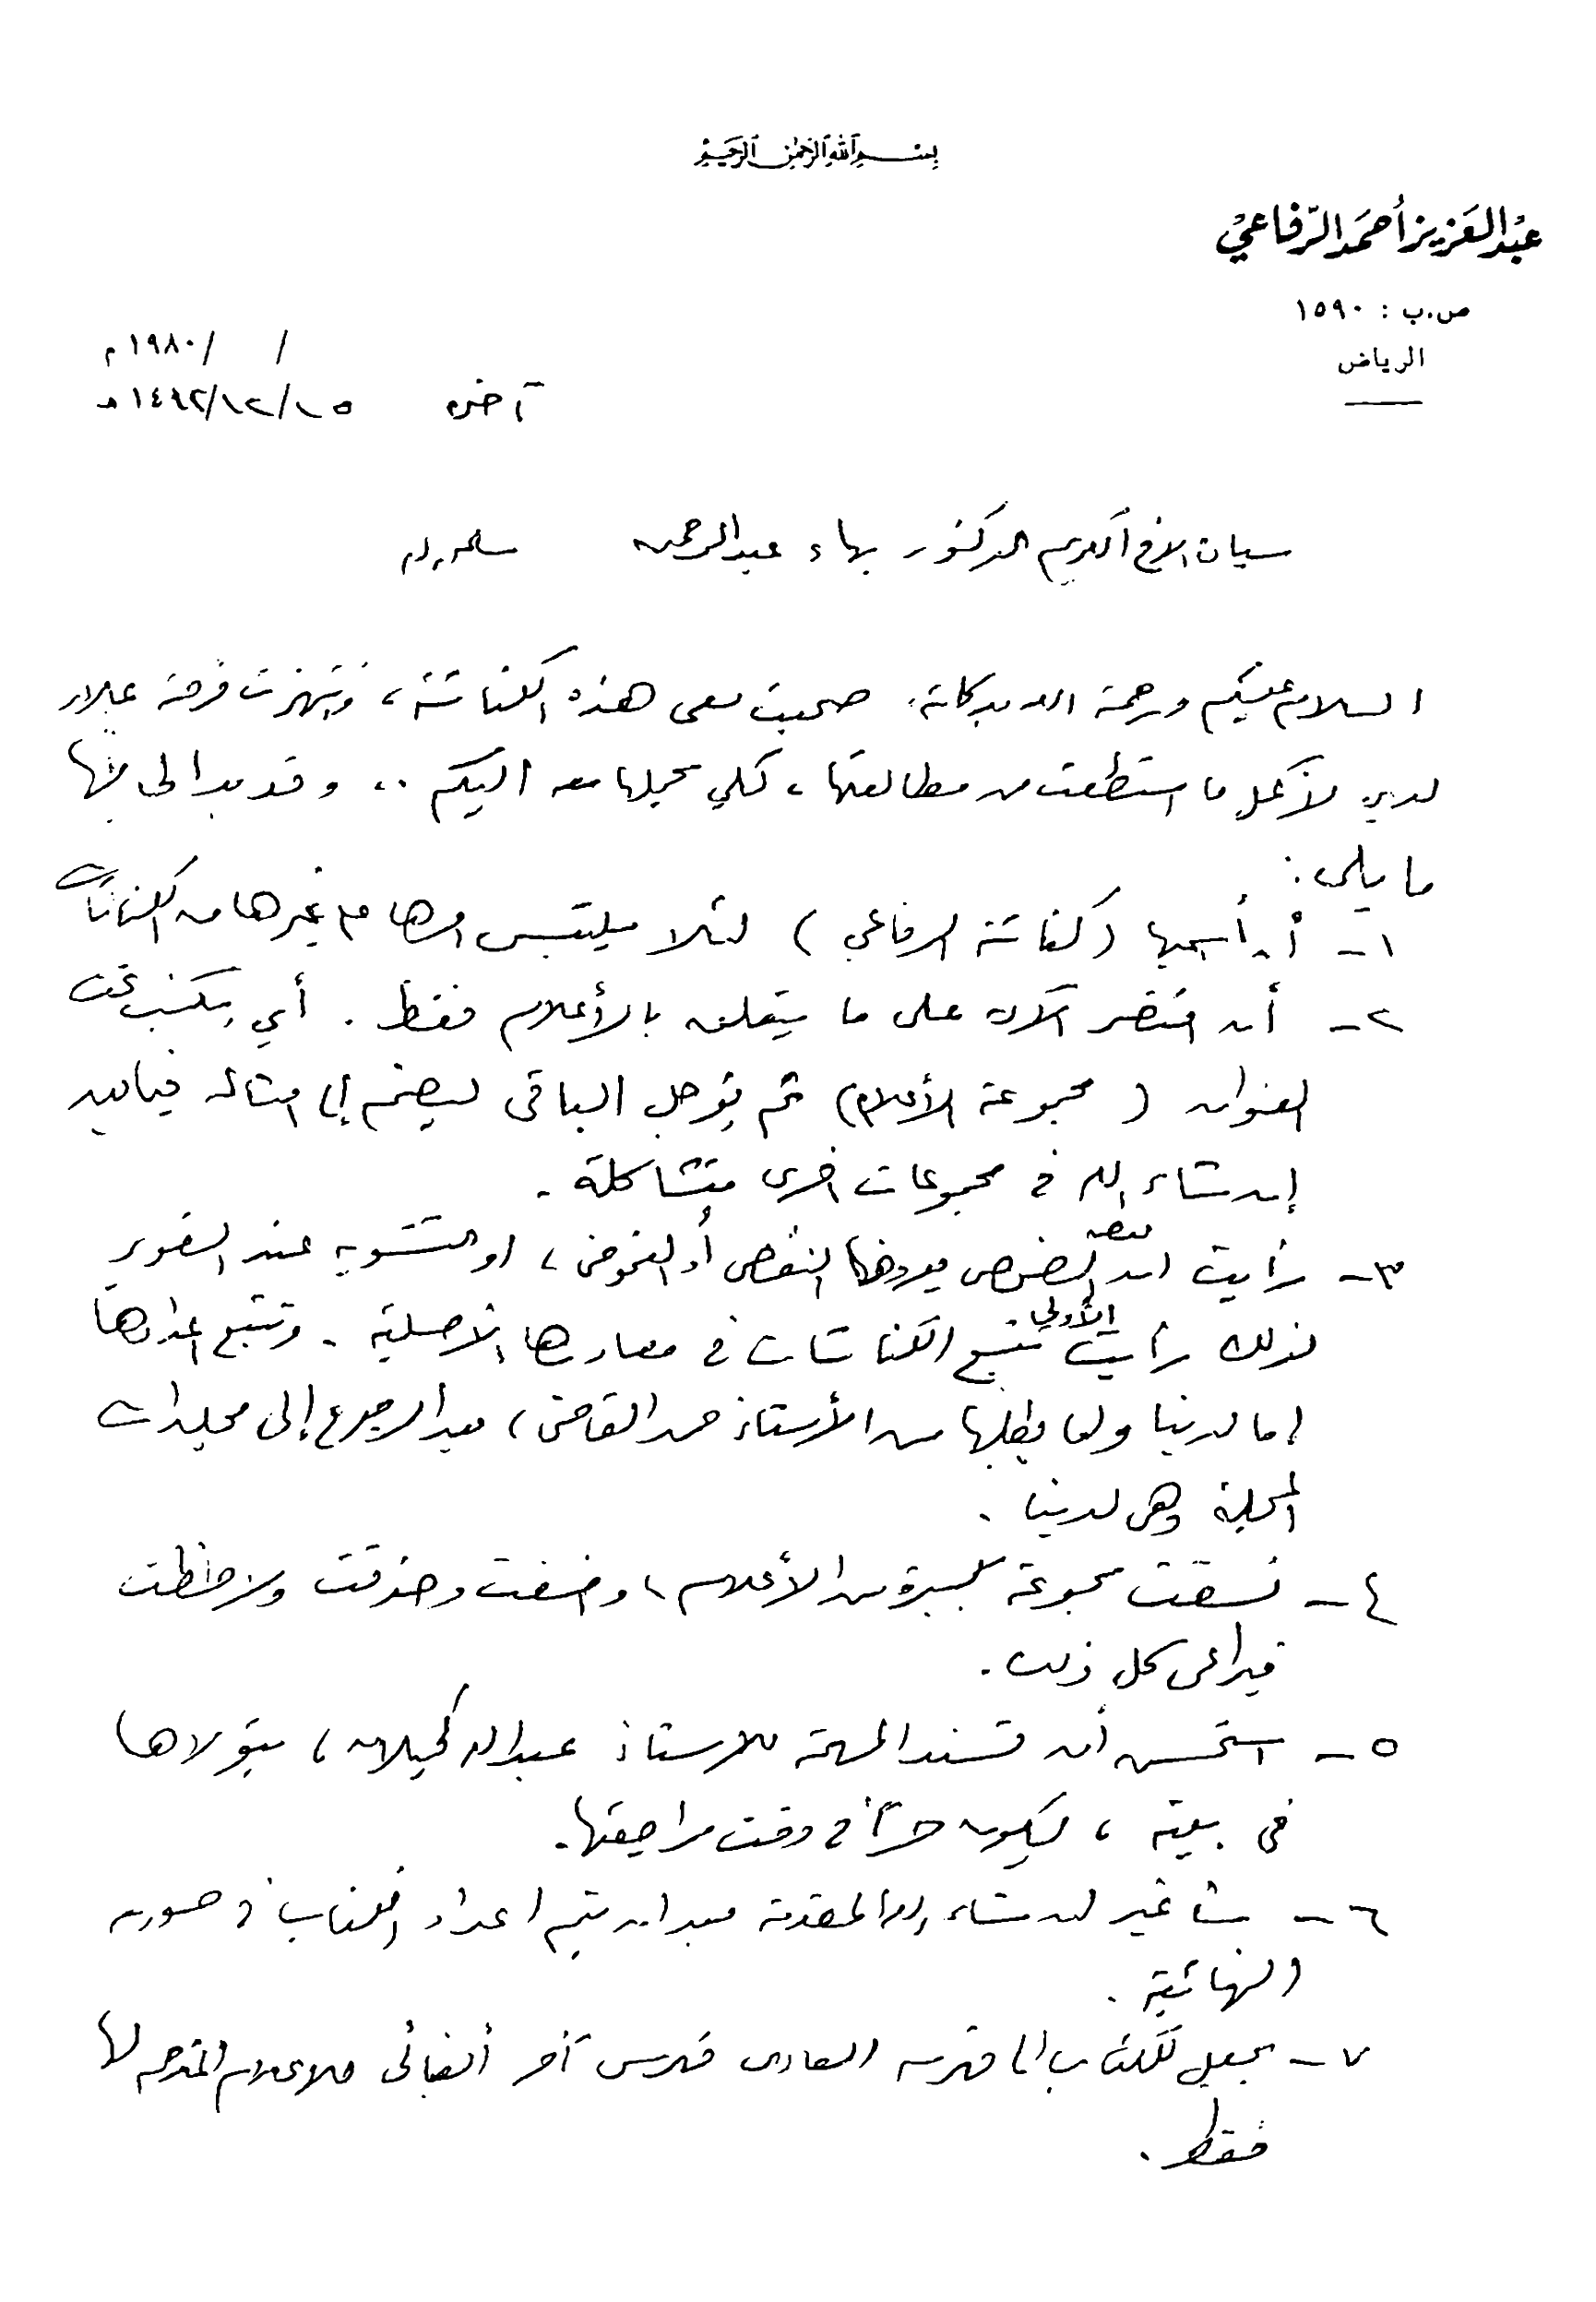 بسم الله الرحمن الرحيم
عبد العزيز أحمد الرفاعي
ص.ب : ١٥٩٠
الرياض
/ /١٩٨٠م
آخره ١٥/١٢/١٤١٢هـ
الأخ الكريم الدكتور بهاء عبدالرحمن سلمه الله
السلام عليكم ورحمة الله وبركاته. صحبت معي هذه الكناشة، وانتهزت فرصة
لدي لأكمل ما استطعت من مطالعتها، لكي يحملها معه اليكم .. وقد بدا لي فيها
ما يلي :
١ - أن أسميها (كناشة الرفاعي) لئلا يلتبس اسمها مع غيرها من الكناشات
٢ - أن اقتصر الآن على ما يتعلق بالأعلام فقط . أي يكتب تحت
العنوان (مجموعة الأعلام) ثم يؤجل الباقي ليضم إلى أمثاله فيما بعد
إن شاء الله في مجموعات اخرى متشاكلة .
٣ - رأيت ان بعض النصوص يعروها النقص أو الغموض، او التشويه عند التصوير
لذلك رأيت الأولى تتبع الكناشات في مصادرها الأصلية . وتتبع اعدادها
اما لدينا واما يطلبها من الأستاذ حمد القاضي، بعد الرجوع إلى مجلدات
المجلة وهي لدينا .
٤ - نسقت مجموعة كبيرة من الأعلام، واضفت وحذفت ولاحظت
فيراعى كل ذلك .
٥ - استحسن أن تسند المهمة للاستاذ عبدالله كحيلان، يتولاها
في بيته ، ليكون حرًا في وقت مراجعتها .
٦ - إن شاء الله المقدمة بعد ان يتم اعداد الكتاب في صورته
النهائية .
٧ - يجعل للكتاب الى فهرسه العادي فهرس آخر ألفبائي للاعلام المترجم لها
فقط .